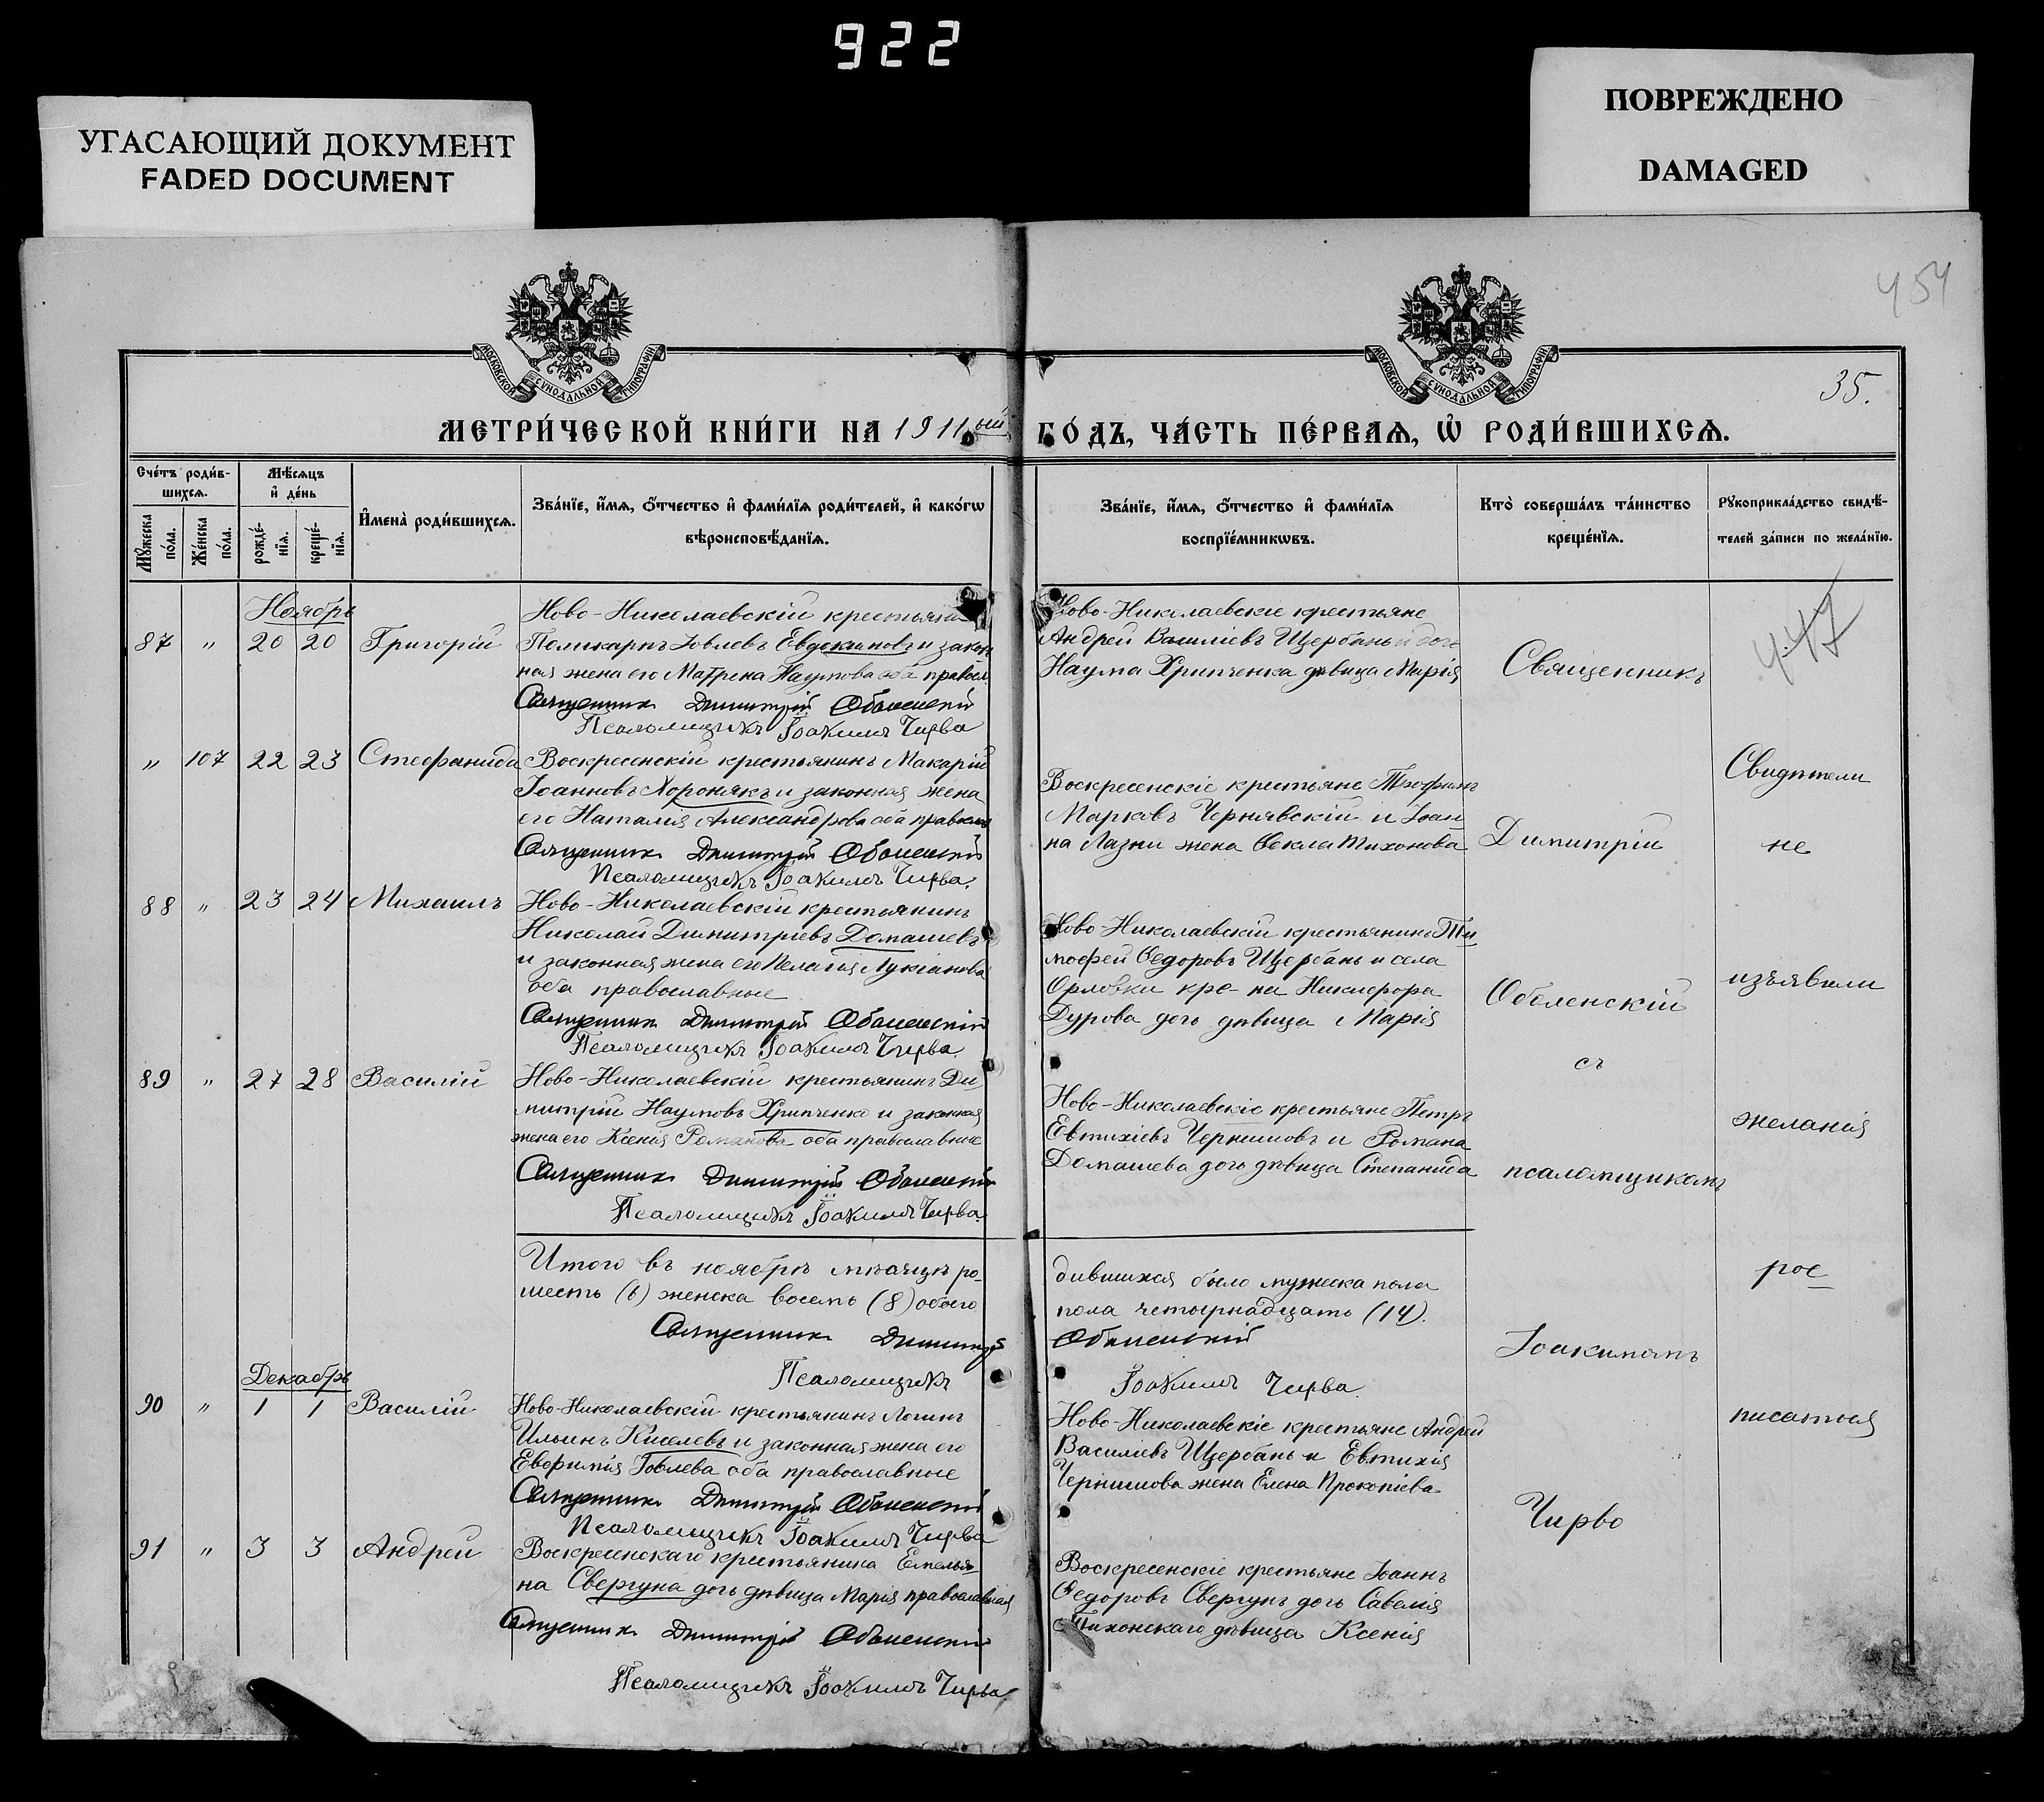 922
УГАСАЮЩИЙ ДОКУМЕНТ
FADED DOCUMENT
ПОВРЕЖДЕНО
DAMAGED
454
35.
МОСКОВСКОЙ СѴНОДАЛЬНОЙ ТИПОГРАФІИ
МОСКОВСКОЙ СѴНОДАЛЬНОЙ ТИПОГРАФІИ
МЕТРИ́ЧЕСКОЙ КНИ́ГИ НА 1911ый ГО́ДЪ, ЧА́СТЬ ПЕ́РВАѦ, Ѡ҆ РОДИ́ВШИХСѦ.
Сче́тъ роди́в-
шихсѧ.
Мꙋ́жеска по́ла.
Же́нска по́ла.
Мѣ́сѧцъ
и҆ де́нь
рожде́-
нїѧ.
креще́-
нїѧ.
И҆мена̀ роди́вшихсѧ.
Зва́нїе, и҆́мѧ, ѻ҆́тчество и҆ фами́лїѧ роди́телей, и҆ како́гѡ
вѣроисповѣ́данїѧ.
Зва́нїе, и҆́мѧ, ѻ҆́тчество и҆ фами́лїѧ
воспрїе́мникѡвъ.
Кто̀ соверша́лъ та́инство
креще́нїѧ.
Рꙋкоприкла́дство свидѣ́-
телей за́писи по жела́нїю.
Ноябрь
87 " 20 20 Григорій
Ново-Николаевскій
Поликарпъ Іовлевъ Евдокимовъ и закон
ная жена его Матрена Наумова оба правосл.
Священникъ Димитрій Оболенскій
Псаломщикъ Іоакимъ Чирва
Ново-Николаевскіе крестьяне
Андрей Василіевъ Щербань и дочь
Наума Хрипченка дѣвица Марія
447
" 107 22 23 Стефанида
Воскресенскій крестьянинъ Макарій
Іоанновъ Хоронякъ и законная жена
его Наталія Александрова оба правосл
Священникъ Димитрій Оболенскій
Псаломщикъ Іоакимъ Чирва.
Воскресенскіе крестьяне
Марковъ Чернявскій и Іоан
на Лазни жена Ѳекла Тихонова
88 " 23 24 Михаилъ
Ново-Николаевскій крестьянинъ
Николай Димитріевъ Домашевъ
и законная жена его Пелагія Лукіанова
оба православные
Священникъ Димитрій Оболенскій
Псаломщикъ Іоакимъ Чирва.
Ново-Николаевскій крестьянинъ Ти
мофей Ѳедоровъ Щербань и села
Орловки кре-на Никифора
Дурова дочь дѣвица Марія
89 " 27 28 Василій
Ново-Николаевскій крестьянинъ Ди
митрій Наумовъ Хрипченко и законная
жена его Ксенія Романова оба православные
Священникъ Димитрій Оболенскій
Псаломщикъ Іоакимъ Чирва.
Ново-Николаевскіе крестьяне Петръ
Евтихіевъ Чернышовъ и Романа
Домашева дочь дѣвица Степанида
Итого въ ноябрѣ мѣсяцѣ ро-
дившихся было мужеска пола
шесть (6) женска восемь (8) обоего
пола четырнадцать (14).
Священникъ Димитрій Оболенскій
Псаломщикъ Іоакимъ Чирва.
Декабрь
90 " 1 1 Василій
Ново-Николаевскій крестьянинъ Логинъ
Ильинъ Киселевъ и законная жена его
Евфимія Іовлева оба православные
Священникъ Димитрій Оболенскій
Псаломщикъ Іоакимъ Чирва
Ново-Николаевскіе крестьяне Андрей
Василіевъ Щербань и Евтихія
Чернышова жена Елена Прокопіева
91 " 3 3 Андрей
Воскресенскаго крестьянина Емелья
на Свергуна дочь дѣвица Марія православная
Священникъ Димитрій Оболенскій
Псаломщикъ Іоакимъ Чирва
Воскресенскіе крестьяне Іоаннъ
Ѳедоровъ Свергунъ дочь Савелія
Тихонскаго дѣвица Ксенія
Священникъ
Димитрій
Оболенскій
съ
псаломщикомъ
Іоакимомъ
Чирво
Свидѣтели
не
изъявили
желанія
рос
писаться